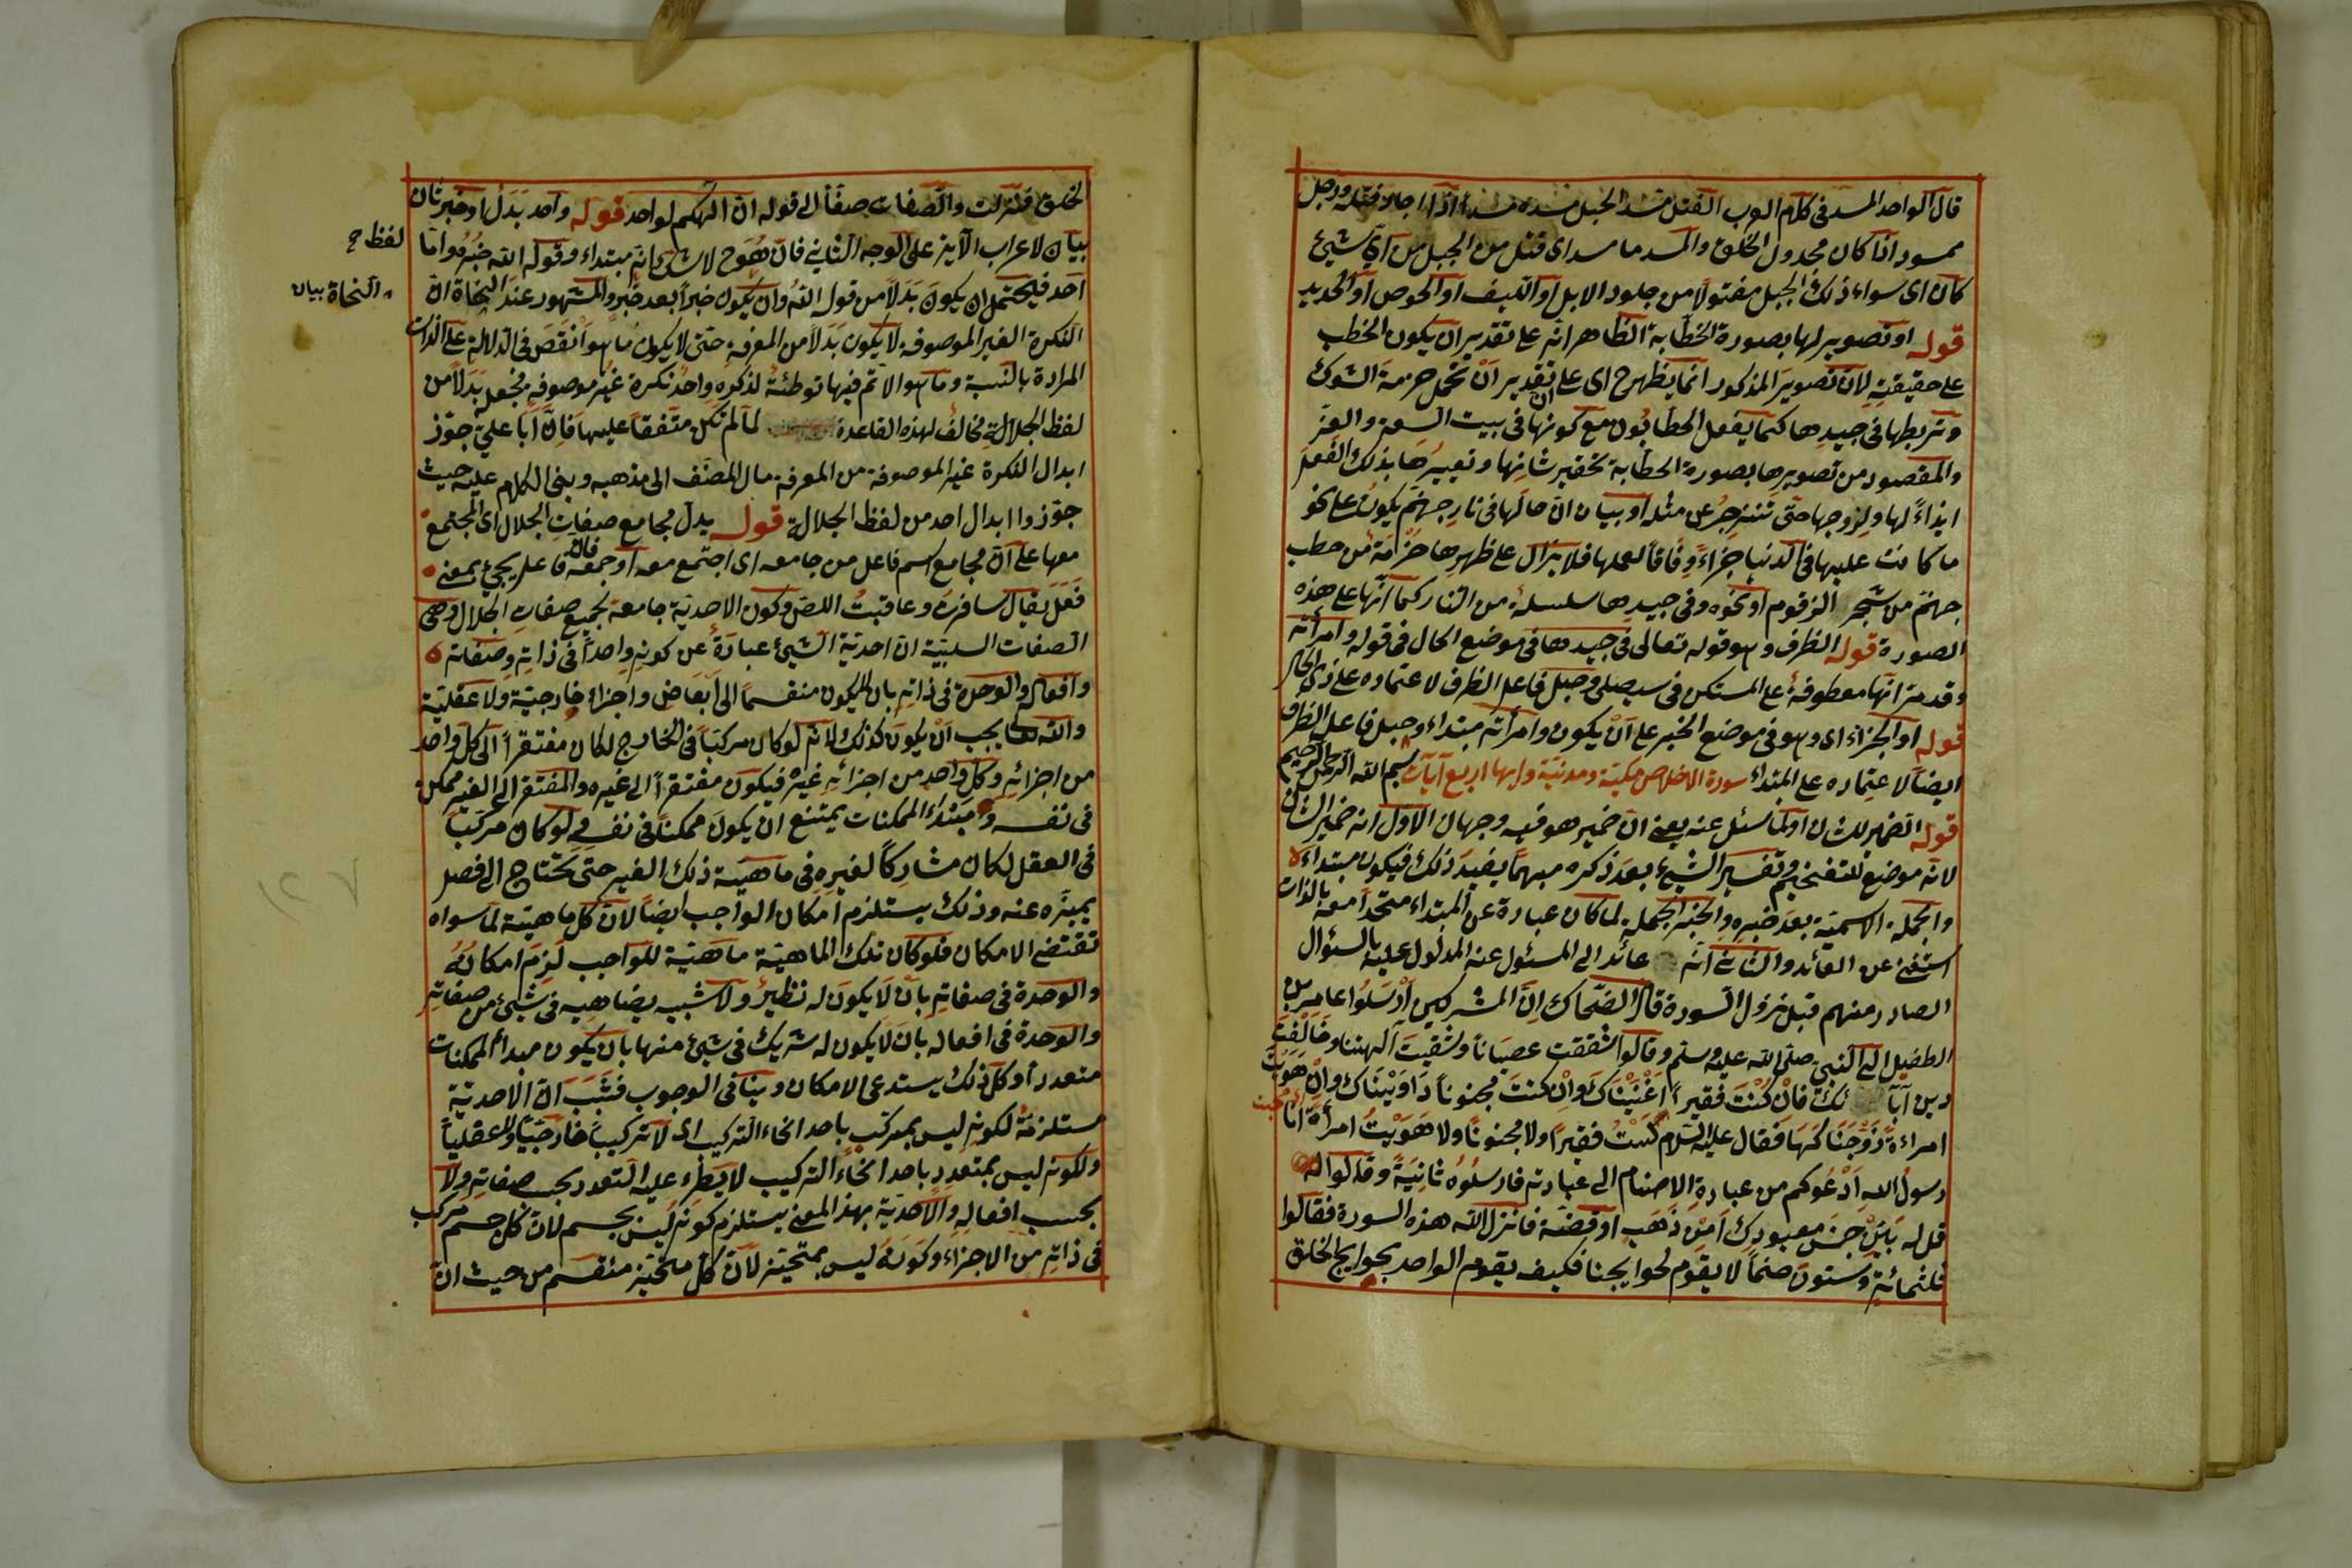 قال الواحد المسد فى كلام العرب الفتل مسد الحبل مسده مسدا اذا اجاد فتله ورجل
ممسود اذا كان مجدول الخلق والمسد ما مسد اى فتل من الحبل من اىّ شيئ
كان اى سواء ذلك الحبل مفتولا من جلود الابل او الليف او الخوص او الحديد
قوله او تصوير لها بصورة الخطّابة الظاهر انه على تقدير ان يكون الحطب
على حقيقته لان تصوير المذكور انما يظهر ح اى على تقدير ان تحمل حزمة الشوك
وتربطها فى جيدها كما يفعل الحطابون مع كونها فى بيت السعة والعز
والمقصود من تصويرها بصورة الحطّابة تحقير شانها وتعييرها بذلك الفعل
ايذاءً لها ولزوجها حتى تنزجر عن مثله او بيان ان حالها فى نار جهنم يكون على نحو
ما كانت عليها فى الدنيا جزاءً وفاقا لعملها فلا يزال على ظهرها حزمة من حطب
جهنم من شجر الزقوم او نحوه وفى جيدها سلسلة من النار كما انها على هذه
الصورة قوله الظرف وهو قوله تعالى فى جيدها فى موضع الحال فى قوله وامرأته
وقد مر انها معطوفة على المستكن فى سيصلى وحبل فاعل الظرف لاعتماده على ذى الحال
قوله او الجزاء اى وهو فى موضع الخبر على ان يكون وامرأته مبتداء وحبل فاعل الظرف
ايضاً لاعتماده على المبتداء سورة الاخلاص مكية ومدنية وايها اربع آيات بسم الله الرحمن الرحيم
قوله الضمير للشان او لما سئل عنه يعنى ان ضمير هو فيه وجهان الاول انه ضمير الشان
لانه موضع للتفخيم وتفسير الشيئ بعد ذكره مبهما يفيد ذلك فيكون مبتداء
والجملة الاسمية بعد خبره والخبر الجملة لما كان عبارة عن المبتداء متحدا معه بالذات
استغنى عن العائد والثانى انه عائد الى المسئول عنه المدلول عليه بالسئوال
الصادر منهم قبل نزول السورة قال الضحاك ان المشركين ارسلوا عامر بن
الطفيل الى النبى صلى الله عليه وسلم وقالوا شققت عصيانا وشقيت آلهتنا وخالفت
دين آبائك فان كنت فقيرا اغنيناك وان كنت مجنونا داويناك وان هويت
امراءة زوجناكها فقال عليه السلام لست فقيرا ولا مجنونا ولا هويت امرأة انا
رسول الله ادعوكم من عبادة الاصنام الى عبادته فارسلوه ثانية وقالوا له
قل له بين جنس معبودك امن ذهب او فضة فانزل الله هذه السورة فقالوا
ثلثمائة وستون صنما لا يقوم لحوايجنا فكيف يقوم الواحد بحوايج الخلق
لخلق فنزلت والصفات صفا الى قوله ان الهكم لواحد قوله واحد بدل او خبر ثان
بيان لاعراب الآية على الوجه الثانى فان هو ح لا شك انه مبتداء وقوله الله خبره واما
لفظ ح
احد فيحتمل ان يكون بدلا من قول الله وان يكون خبرا بعد خبر والمشهور عند النحاة ان
النحاة بيان
النكرة الغير الموصوفة لا يكون بدلا من المعرفة حتى لا يكون ما هو انقص فى الدلالة على الذات
المرادة بالنسبة وما هو الاتم فيها توطئة لذكره واحد نكرة غير موصوفة فجعله بدلا من
لفظ الجلالة مخالف لهذه القاعدة لما لم تكن متفقا عليها فان ابا على جوز
ابدال النكرة غير الموصوفة من المعرفة مال المصنف الى مذهبه وبنى الكلام عليه حيث
جوزوا ابدال احد من لفظ الجلالة قوله يدل مجامع صفات الجلال اى المجتمع
معها على ان مجامع اسم فاعل من جامعه اى اجتمع معه او جمعه فان فاعل يجئ بمعنى
فعل يقال سافرت وعاقبت اللص وكون الاحدية جامعة لجميع صفات الجلال وهى
الصفات السلبية ان احدية الشيئ عبادة عن كونه واحدا فى ذاته وصفاته
وافعاله والوحدة فى ذاته بان لا يكون منقسما الى ابعاض واجزاء خارجية ولا عقلية
والله تعا يجب ان يكون كذلك ولانه لو كان مركبا فى الخارج لكان مفتقرا الى كل واحد
من اجزائه وكل واحد من اجزائه غيره فيكون مفتقرا الى غيره والمفتقر الى الغير ممكن
فى نفسه ومبتداء الممكنات يمتنع ان يكون ممكنا فى نفسه لو كان مركبا
فى العقل لكان مشاركا لغيره فى ماهية ذلك الغير حتى تحتاج الى فصل
يميزه عنه وذلك يستلزم امكان الواجب ايضا لان كل ماهية لما سواه
تقتضى الامكان فلو كان تلك الماهية ماهية للواجب لزم امكانه
والوحدة فى صفاته بان لا يكون له نظير ولا شبيب يضاهيه فى شيئ من صفاته
والوحدة فى افعاله بان لا يكون له شريك فى شيئ منها بان يكون مبدأ الممكنات
متعددا وكل ذلك يستدعى الامكان وينافى الوجوب فثبت ان الاحدية
مستلزمة لكونه ليس بمركب باحد انحاء التركيب اى لا تركيبا خارجيا ولا عقليا
ولكونه ليس بمتعدد باحد انحاء التركيب لا يطرء عليه التعدد بحسب صفاته ولا
بحسب افعاله والاحدية بهذا المعنى يستلزم كونه ليس بجسم لان كل جسم مركب
فى ذاته من الاجزاء وكونه ليس بمتحيز لان كل متحيز منقسم من حيث ان